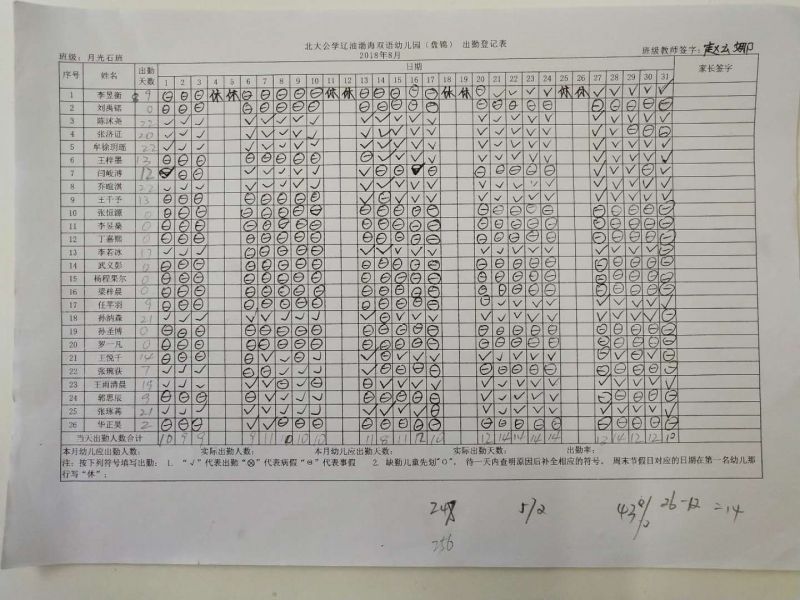 北大公学辽油渤海双语幼儿园（盘锦） 出勤登记表
班级：月光石班 2018年8月 班级教师签字：
序号 姓名 出勤天数 日期 家长签字
1 2 3 4 5 6 7 8 9 10 11 12 13 14 15 16 17 18 19 20 21 22 23 24 25 26 27 28 29 30 31
1 李昱衡 9 休 休 休 休 休 休 休 休
2 刘禹铭 0
3 陈沭尧 22
4 张济证 20
5 牟徐玥瑶 22
6 王梓墨 13
7 闫峻溥 12
8 乔暄淇 22
9 王千予 13
10 张恒源 0
11 李昊燊 0
12 丁嘉熙 0
13 李若冰 17
14 武义彭 0
15 杨程果尔 0
16 梁梓晨 0
17 任芊羽 9
18 孙纳森 21
19 孙圣博 0
20 罗一凡 0
21 王悦千 14
22 张琬荻 7
23 王雨清晨
24 郭思辰
25 张琢苒 21
26 华正昊 2
当天出勤人数合计 10 9 9 9 11 10 10 11 8 11 12 10 12 14 14 14 14 12 14 12 12 10
本月幼儿应出勤人数： 实际出勤人数： 本月幼儿应出勤天数： 实际出勤天数： 出勤率：
注：按下列符号填写出勤：1. “√”代表出勤“⊗”代表病假“⊖”代表事假 2. 缺勤儿童先划"○"， 待一天内查明原因后补全相应的符号。 周末节假日对应的日期在第一名幼儿那
行写“休”；
572 43% 26-12=14
256